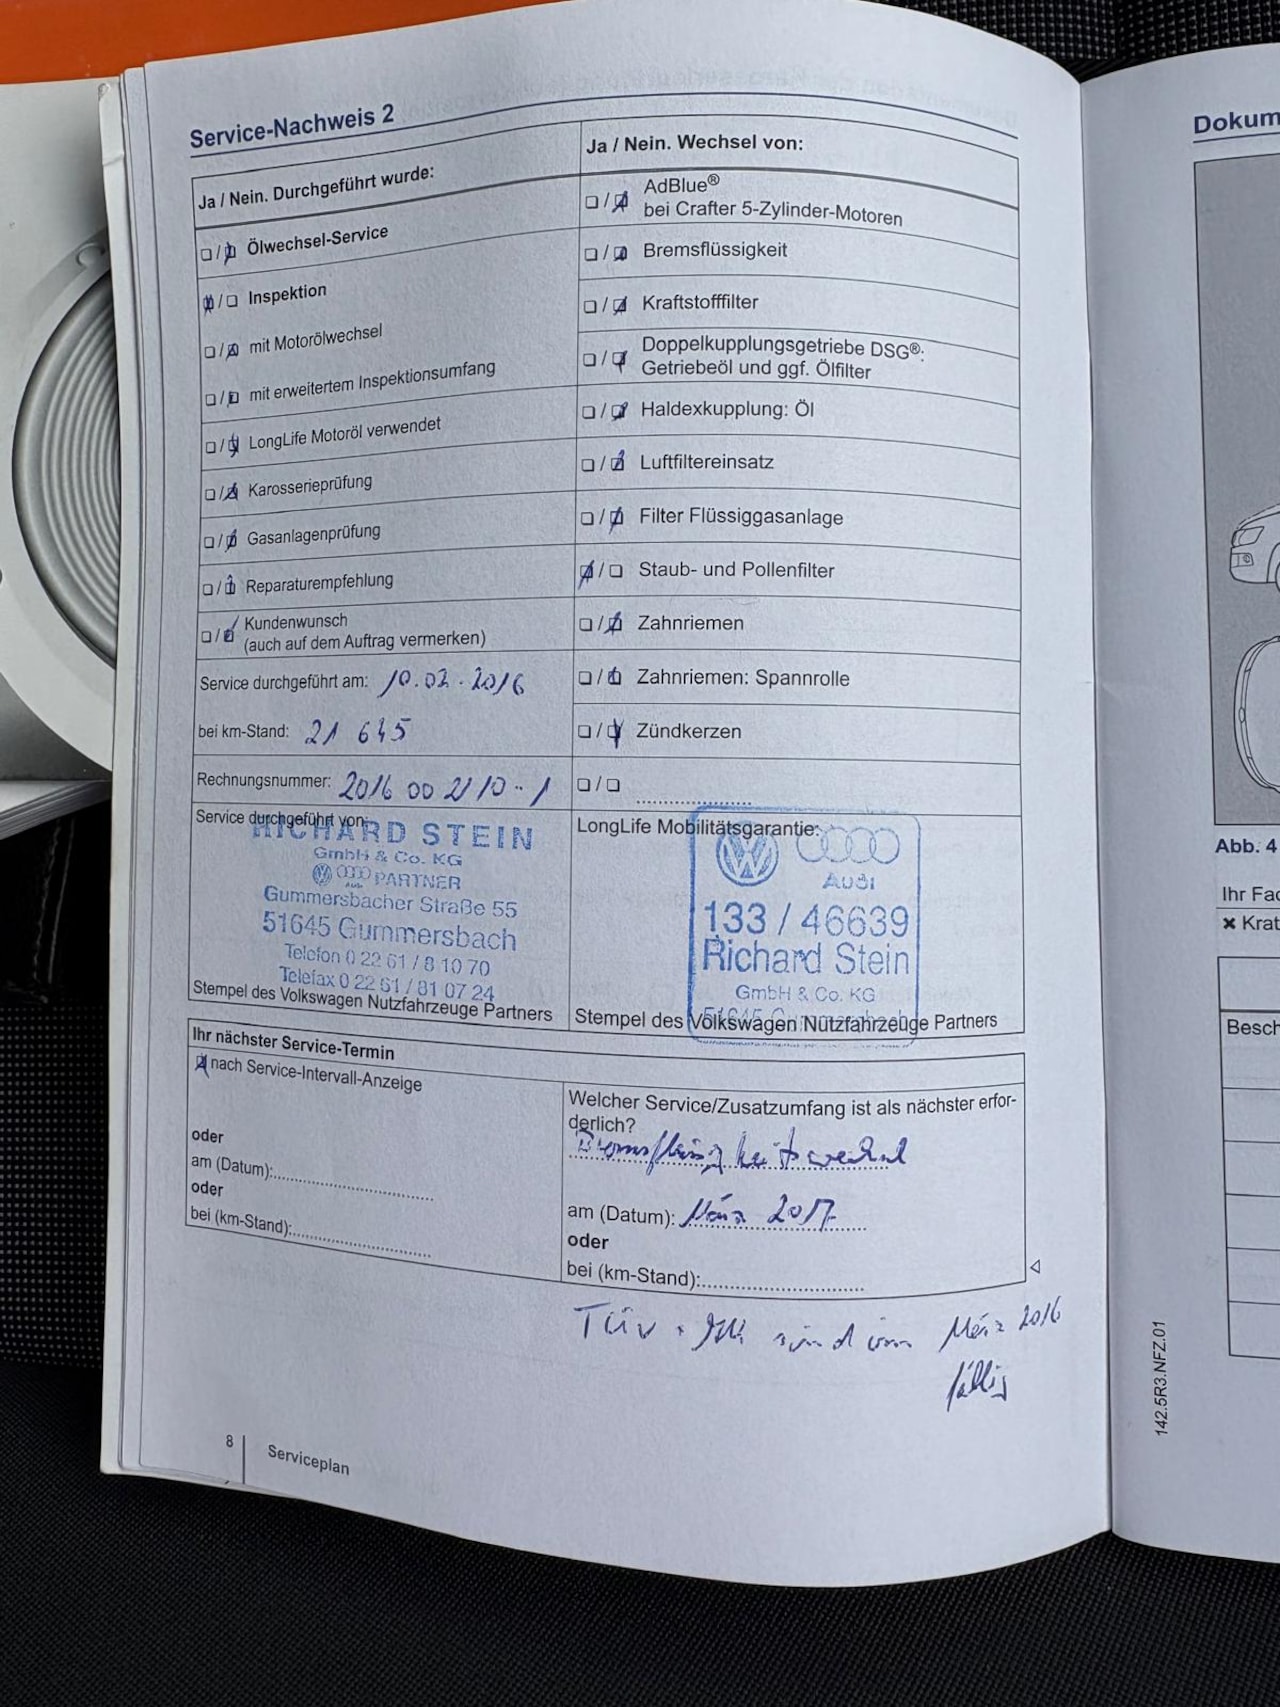 Service-Nachweis 2
Ja / Nein. Durchgeführt wurde:
Ölwechsel-Service
Inspektion
mit Motorölwechsel
mit erweitertem Inspektionsumfang
LongLife Motoröl verwendet
Karosserieprüfung
Gasanlagenprüfung
Reparaturempfehlung
Kundenwunsch
(auch auf dem Auftrag vermerken)
Service durchgeführt am: 10.02.2016
bei km-Stand: 21 645
Rechnungsnummer: 2016 00 2110-1
Service durchgeführt von:
RICHARD STEIN
GmbH & Co. KG
PARTNER
Gummersbacher Straße 55
51645 Gummersbach
Telefon 0 22 61 / 8 10 70
Telefax 0 22 61 / 81 07 24
Stempel des Volkswagen Nutzfahrzeuge Partners
Ja / Nein. Wechsel von:
AdBlue®
bei Crafter 5-Zylinder-Motoren
Bremsflüssigkeit
Kraftstofffilter
Doppelkupplungsgetriebe DSG®:
Getriebeöl und ggf. Ölfilter
Haldexkupplung: Öl
Luftfiltereinsatz
Filter Flüssiggasanlage
Staub- und Pollenfilter
Zahnriemen
Zahnriemen: Spannrolle
Zündkerzen
LongLife Mobilitätsgarantie:
Audi
133 / 46639
Richard Stein
GmbH & Co. KG
51645 Gummersbach
Stempel des Volkswagen Nutzfahrzeuge Partners
Ihr nächster Service-Termin
nach Service-Intervall-Anzeige
oder
am (Datum):
oder
bei (km-Stand):
Welcher Service/Zusatzumfang ist als nächster erfor-
derlich?
Bremsflüssigkeitswechsel
am (Datum): März 2017
oder
bei (km-Stand):
TÜV + AU sind im März 2016
fällig
8
Serviceplan
142.5R3.NFZ.01
Dokum
Abb. 4
Ihr Fac
✖ Krat
Besch